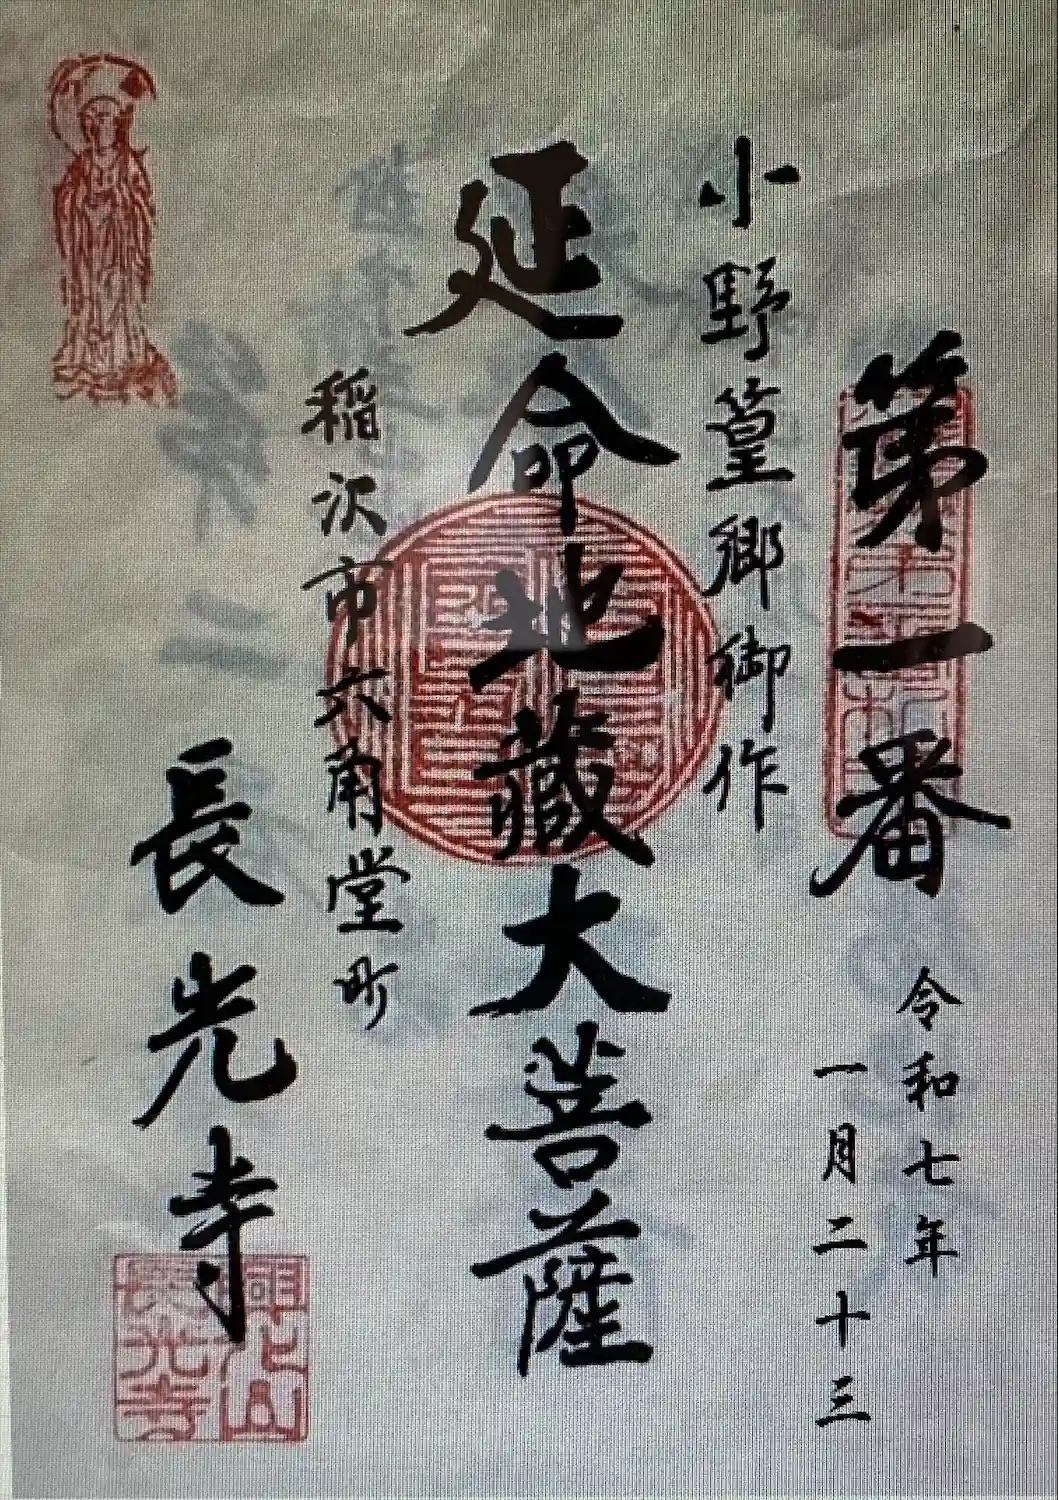 第一番
令和七年
一月二十三
小野篁郷御作
延命地蔵大菩薩
稲沢市六角堂町
長光寺
長光寺